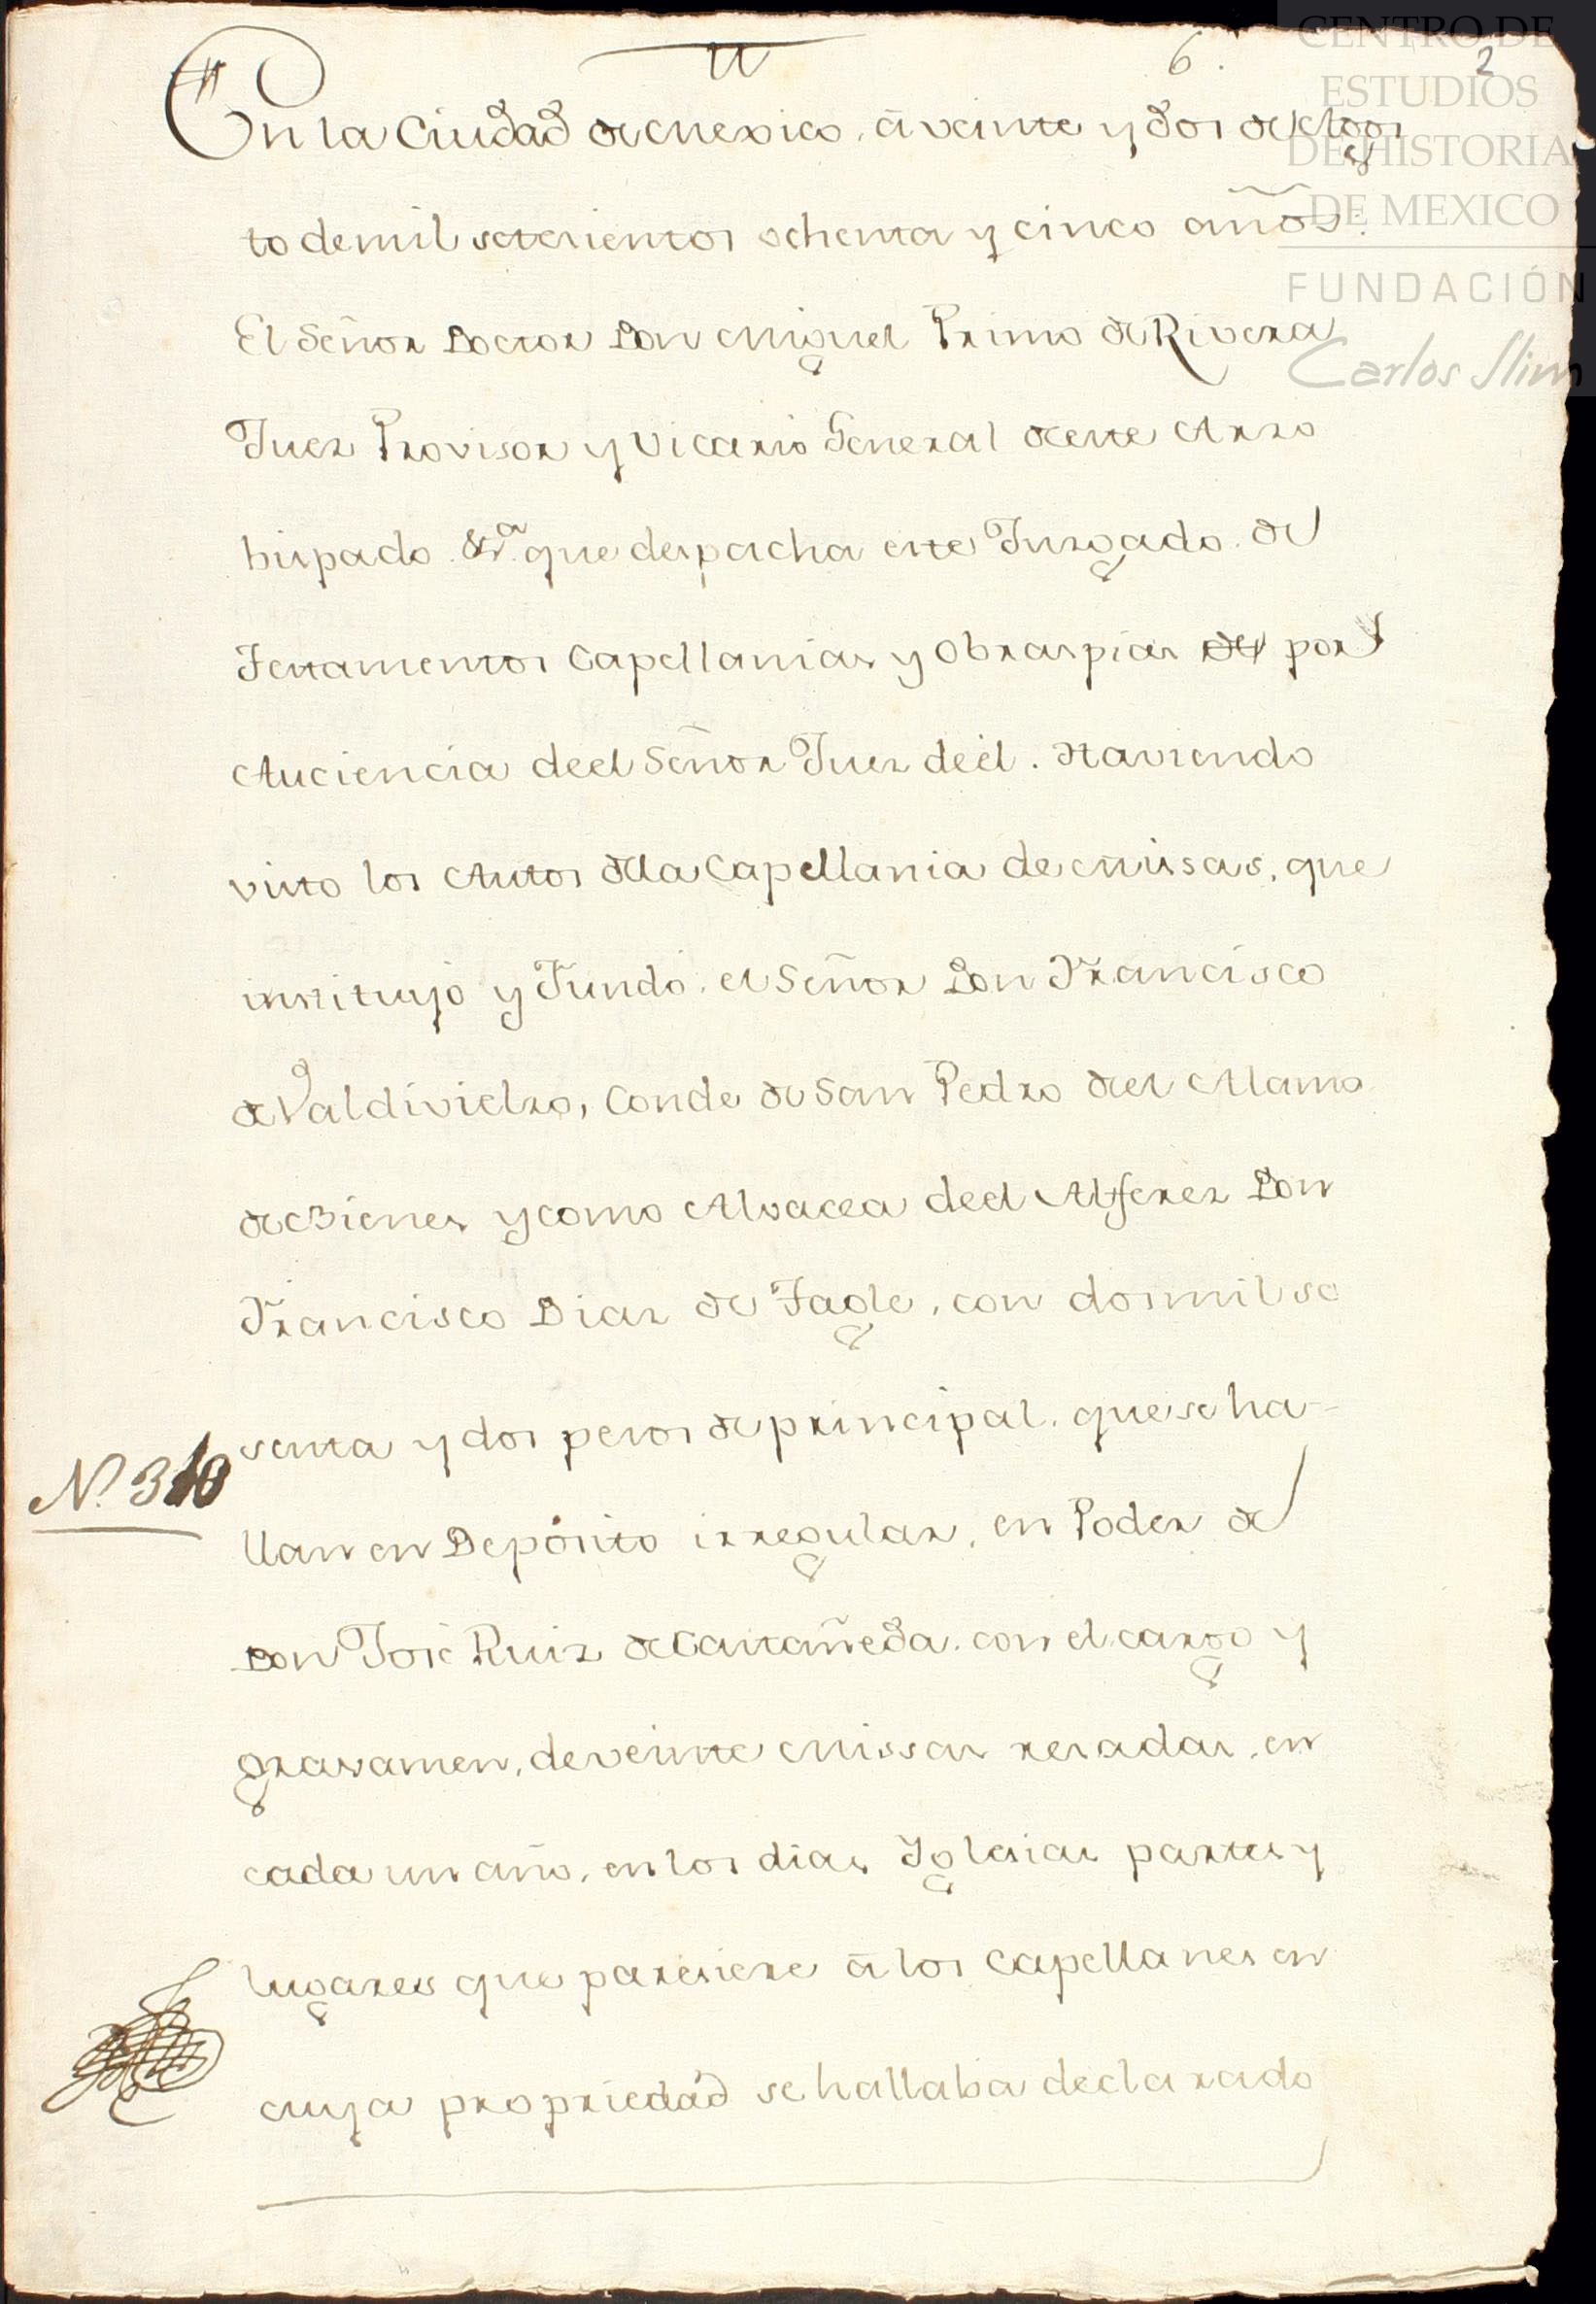 6.
2
En la Ciudad de Mexico, á veinte y dos de Agos
to de mil setesientos ochenta y cinco años.
El Señor Doctor Don Miguel Primo de Rivera
Juez Provisor y Vicario General de este Arzo
bispado. &ra. que despacha este Juzgado. de
Testamentos Capellanias y Obraspias de por
Auciencia deel Señor Juez deèl. Haviendo
visto los Autos de la Capellania de Missas, que
instituyó y Fundó. el Señor Don Francisco
de Valdivielzo, Conde de San Pedro del Alamo
de Bienes y como Alvacea deel Alferez Don
Francisco Diaz de Tagle, con dos mil se
senta y dos pesos de principal. que se ha-
llan en Depósito irregular, en Poder de
Don José Ruiz de Castañeda. con el cargo y
gravamen, de veinte Missas resadas, en
cada un año, en los dias Yglesias partes y
lugares que paresiere á los Capellanes en
cuya propriedad se hallaba declarado
N. 310
CENTRO DE
ESTUDIOS
DE HISTORIA
DE MEXICO
FUNDACIÓN
Carlos Slim